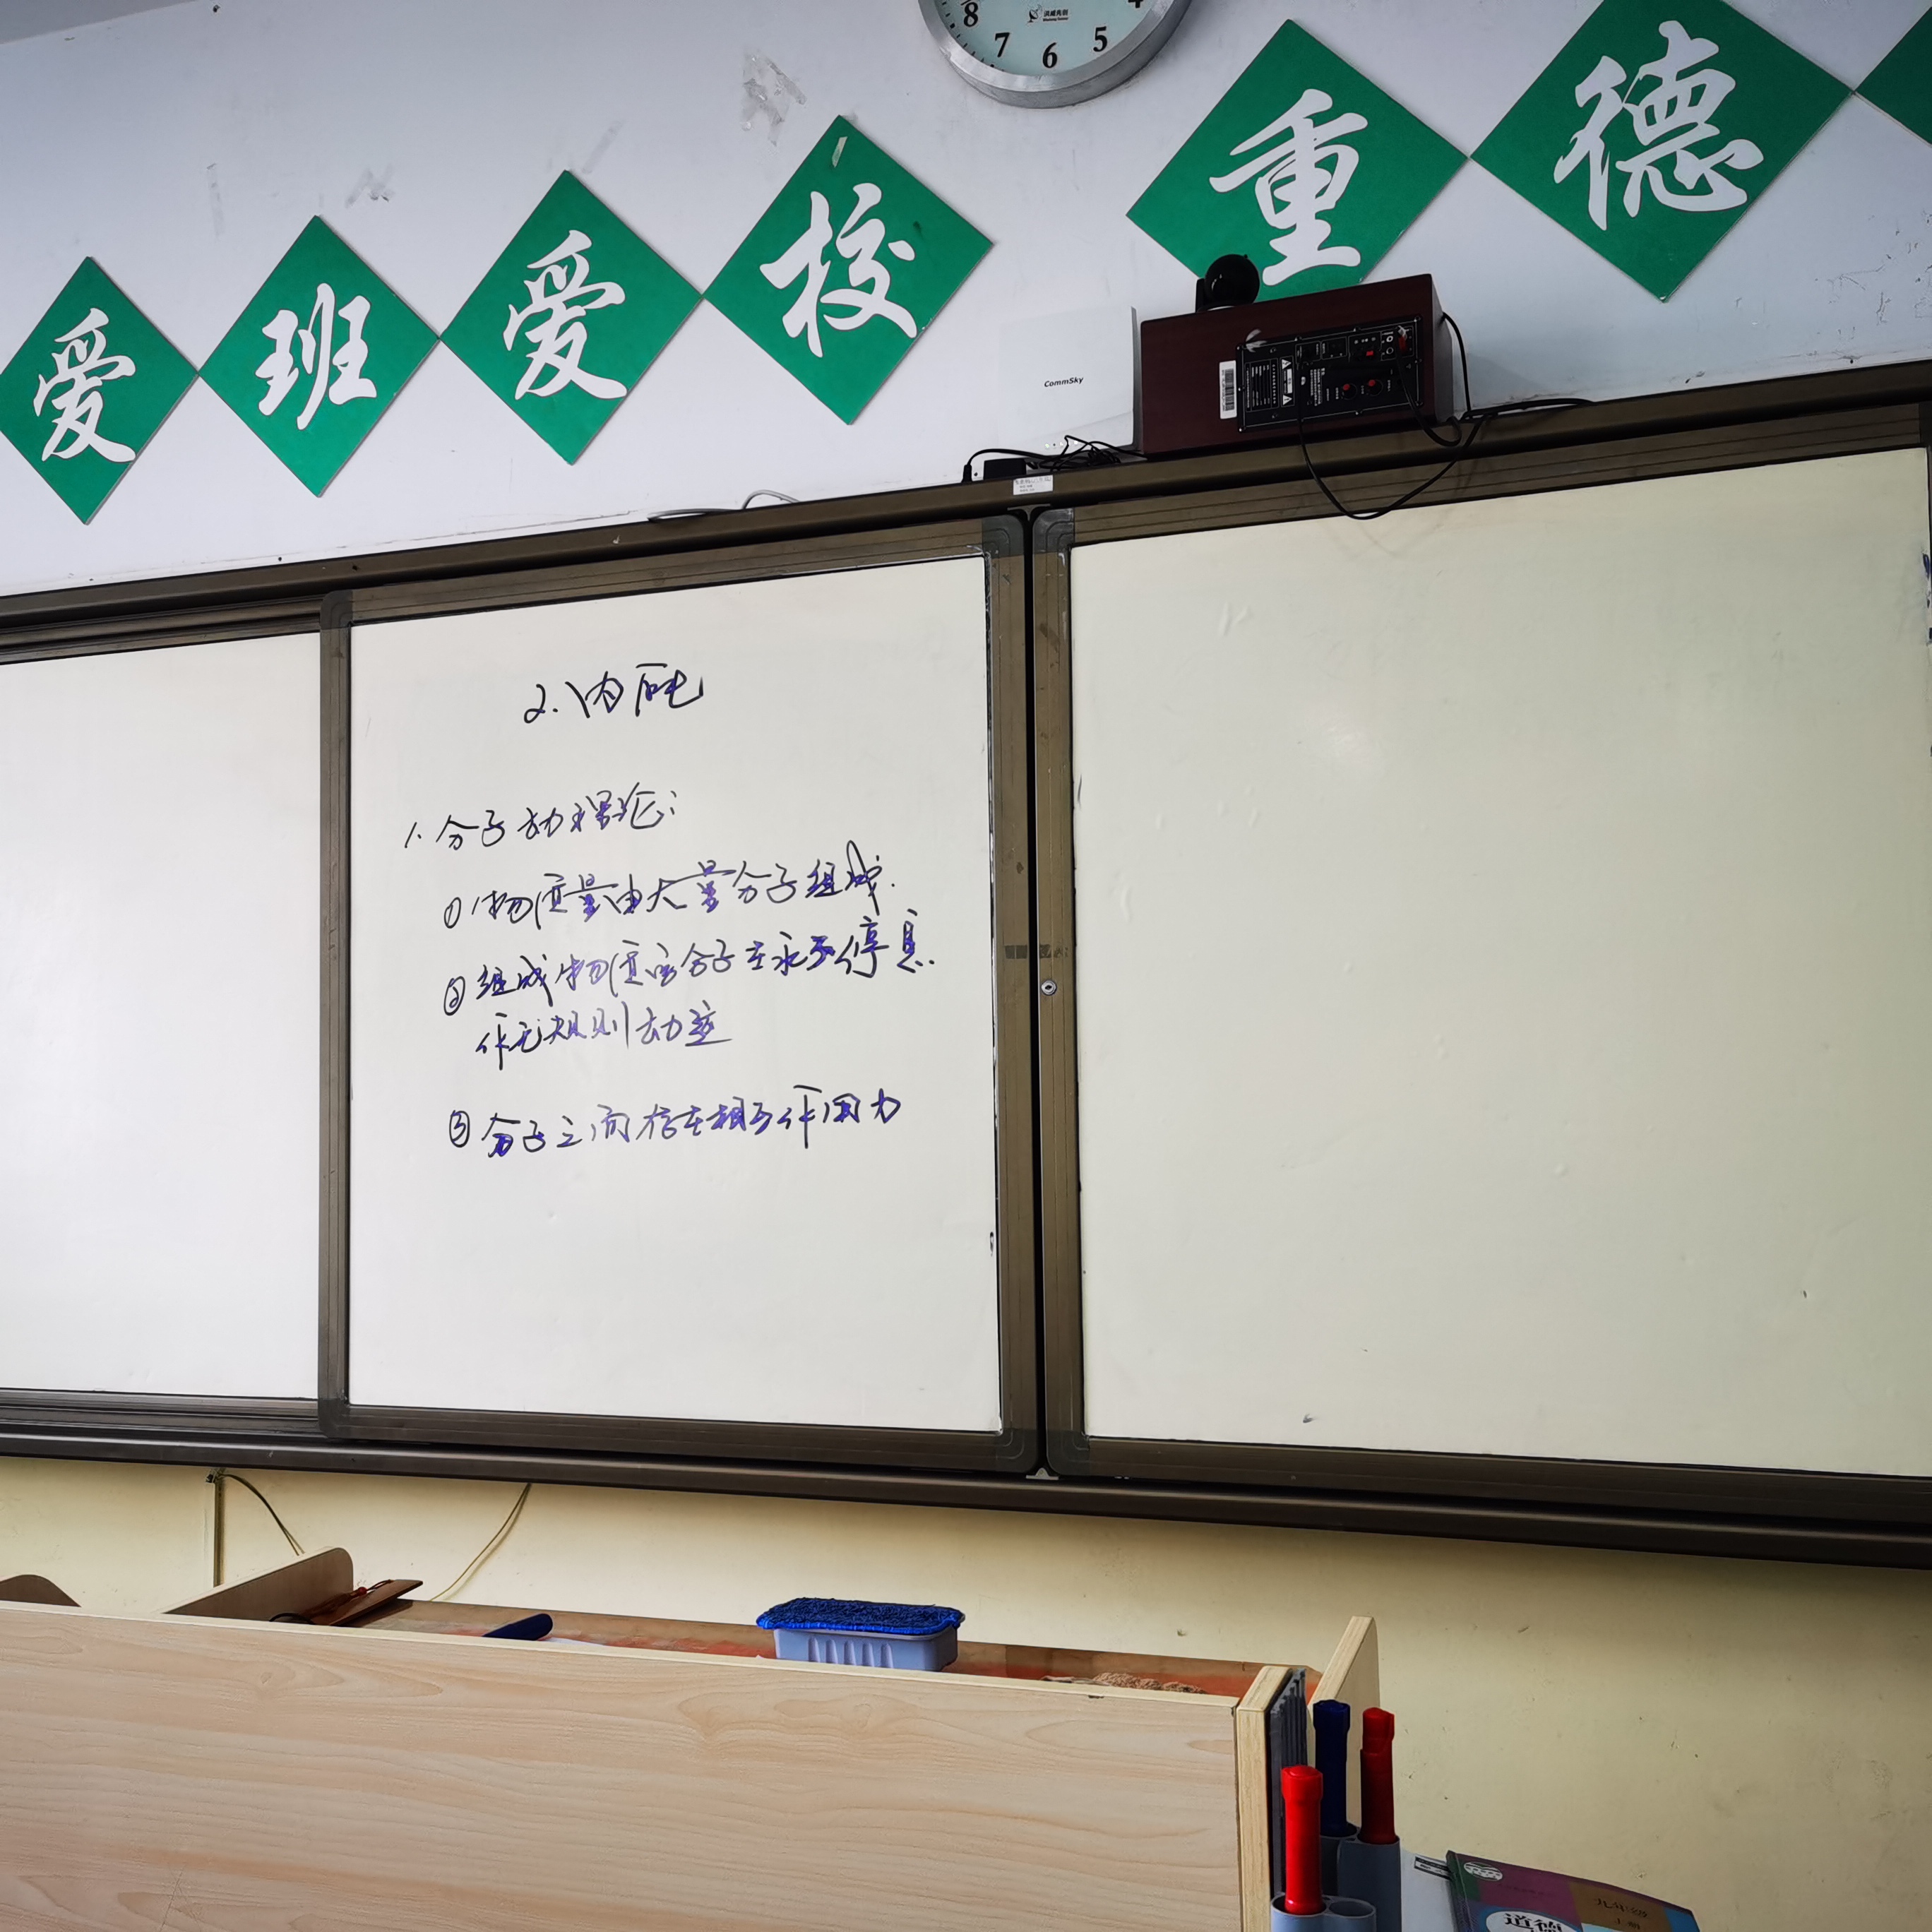 8 7 6 5 4
爱班爱校 重德
CommSky
2.内能
1.分子动理论:
①物质是由大量分子组成.
②组成物质的分子在永不停息
作无规则动运
③分子之间存在相互作用力
九年级
上册
道德